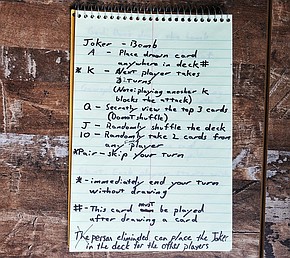 Joker - Bomb
A - Place drawn card
anywhere in deck #
* K - Next player takes
3 turns
(Note: playing another K
blocks the attack)
Q - Secretly view the top 3 cards
(Do not shuffle)
J - Randomly shuffle the deck
10 - Randomly take 2 cards from
any player
* Pair - skip your turn
* - immediately end your turn
without drawing
# - This card must be played
after drawing a card
The person eliminated can place the Joker
in the deck for the other players